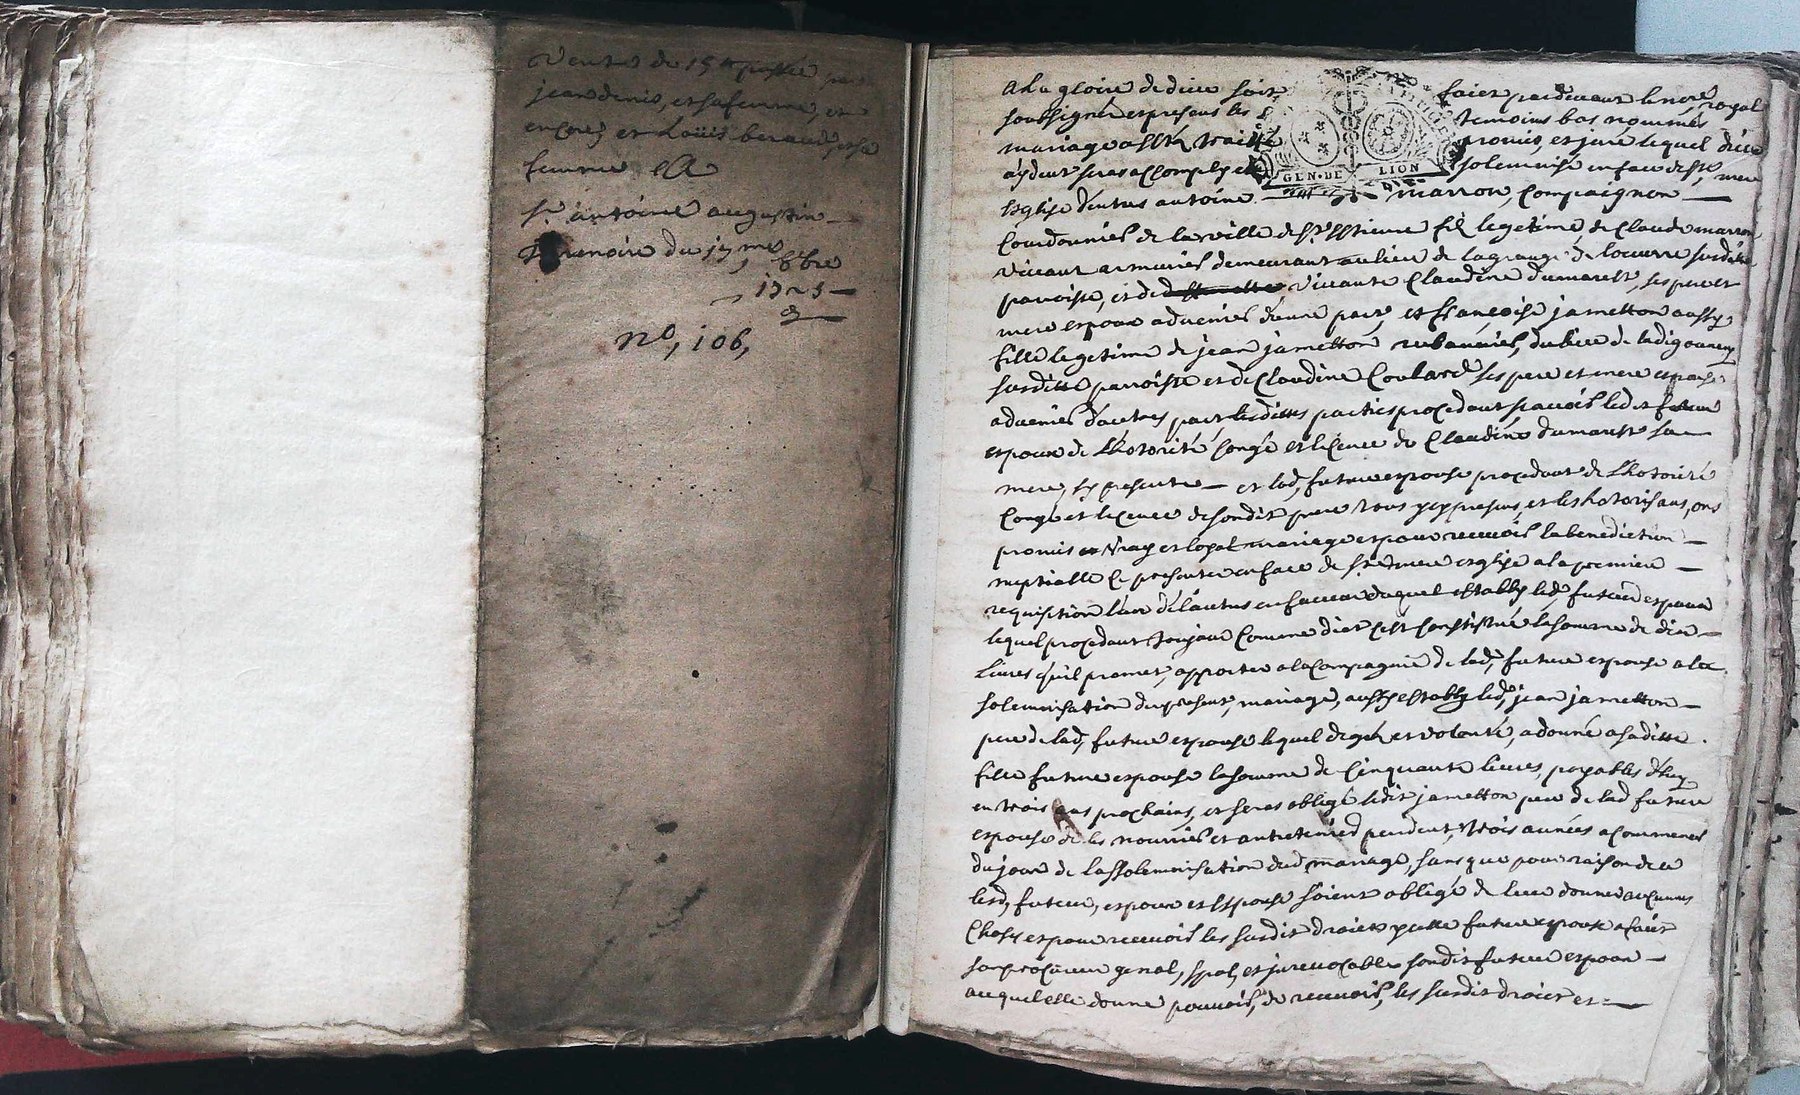 Vente de 15ll passée par
jean denis, et sa femme, et
encores et Loüis beraud, et sa
femme A
sr antoine augustin
Thenoire du 17me 8bre
1725
no, 106,
A La gloire de dieu soit faict pardevant le nore royal
soubsigné et presens les temoins bas nommés
mariage a esté traitté promis et juré lequel dieu
aydent seras accomply et solemnisé en face de ste mere
Esglise d'entres antoine marron, Compaignon
Courdonnier de la ville de st Estienne fils legetime de Claude marron
vivant armurier demeurant au lieu de la grange de loeuvre susditte
parroisse, et de vivante Claudine dumarest, ses pere et
mere espoux advenir d'une part, et françoise jametton aussy
fille legetime de jean jametton rubannier, du lieu de la digonnery
susditte parroisse et de Claudine Coulard ses pere et mere espouse
advenir d'autres part, lesdittes parties procedant scavoir ledit futeur
espoux de L'hotorité congé et licence de Claudine dumarest sa
mere, icy presente et lad, future espouse procedant de L'hotorité
Congé et licence de son dit pere tous icy presens, et les hotorisans, ons
promis vray et loyal mariage et pour recevoir la benediction
nuptialle se presenter en face de ste mere esglise a la premiere
requisition l'un de l'autres en faveur duquel establi led, futeur espoux
lequel procedant toujour comme dict s'est constistué la somme de dix
Livres qu'il promet, apporter a la Compagnie de lad, future espouse a la
solemnisation du present, mariage, aussy estably led, jean jametton
pere de lad, future espouse lequel de gré et volonté, a donné a saditte
fille future espouse la somme de Cinquante livres, payables d'huy
en trois ans prochains, et seras obligé ledit jametton pere de lad future
espouse de les nourrir et antretenir pendent, trois années a commencer
du jour de la sollemnisation dud, mariage, sans que pour raison de ce
lesd, futeur, espoux et Espouse soient obligé de leur donner aucunnes
Choses et pour recevoir les susdit droicts ycelle future espouse a faict
son procureur genal, spal, et jrevocable sondit futeur espoux
auquel elle donne pouvoir, de recevoir, les susdit droict et
GEN·DE LION